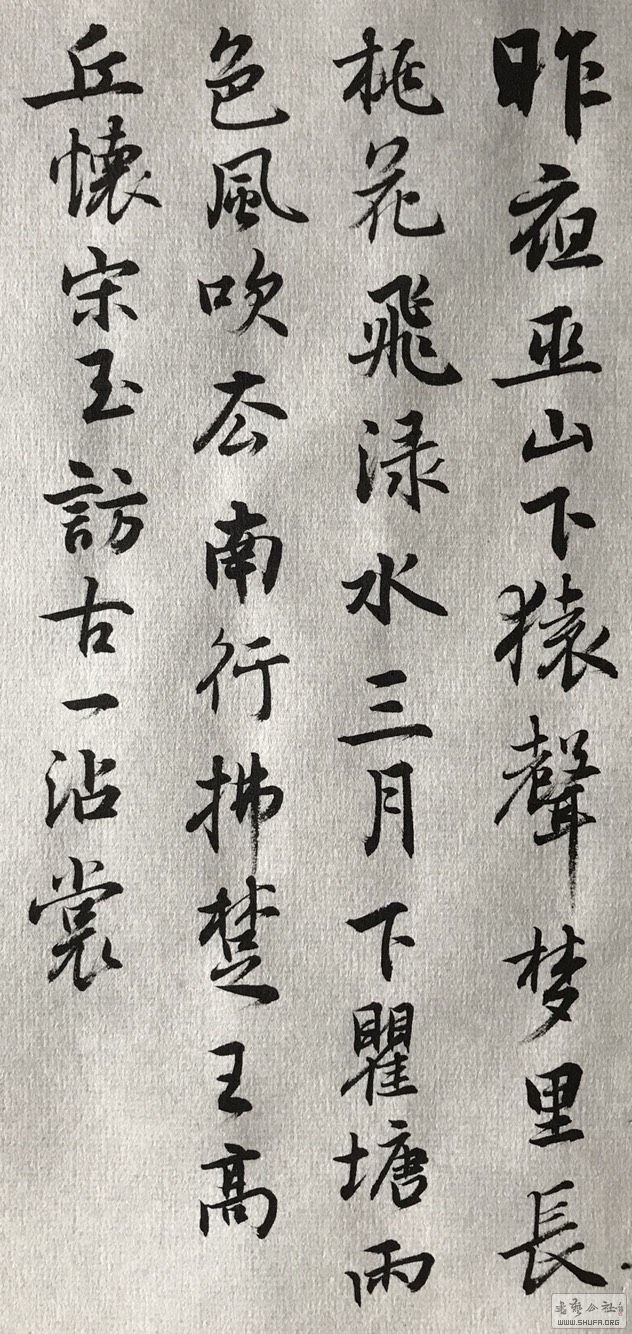 昨夜巫山下猿聲梦里長
桃花飛渌水三月下瞿塘雨
色風吹去南行拂楚王高
丘懷宋玉訪古一沾裳
書藝公社
WWW.SHUFA.ORG